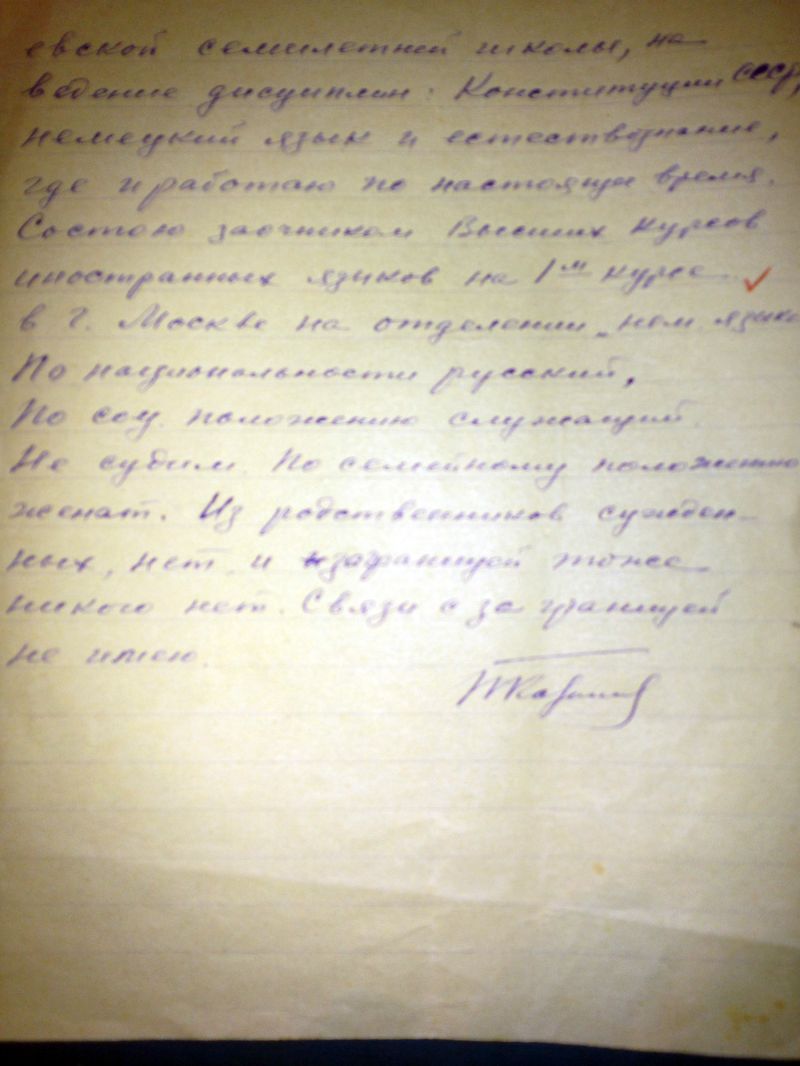 евской семилетней школы, на
ведение дисциплин: Конституции СССР,
немецкий язык и естествознание,
где и работаю по настоящее время.
Состою заочником Высших курсов
иностранных языков на 1м курсе
в г. Москве на отделении нем. языка
По национальности русский,
По соц. положению служащий.
Не судим. По семейному положению
женат. Из родственников сужден-
ных, нет и заграницей тоже
никого нет. Связи с за границей
не имею.